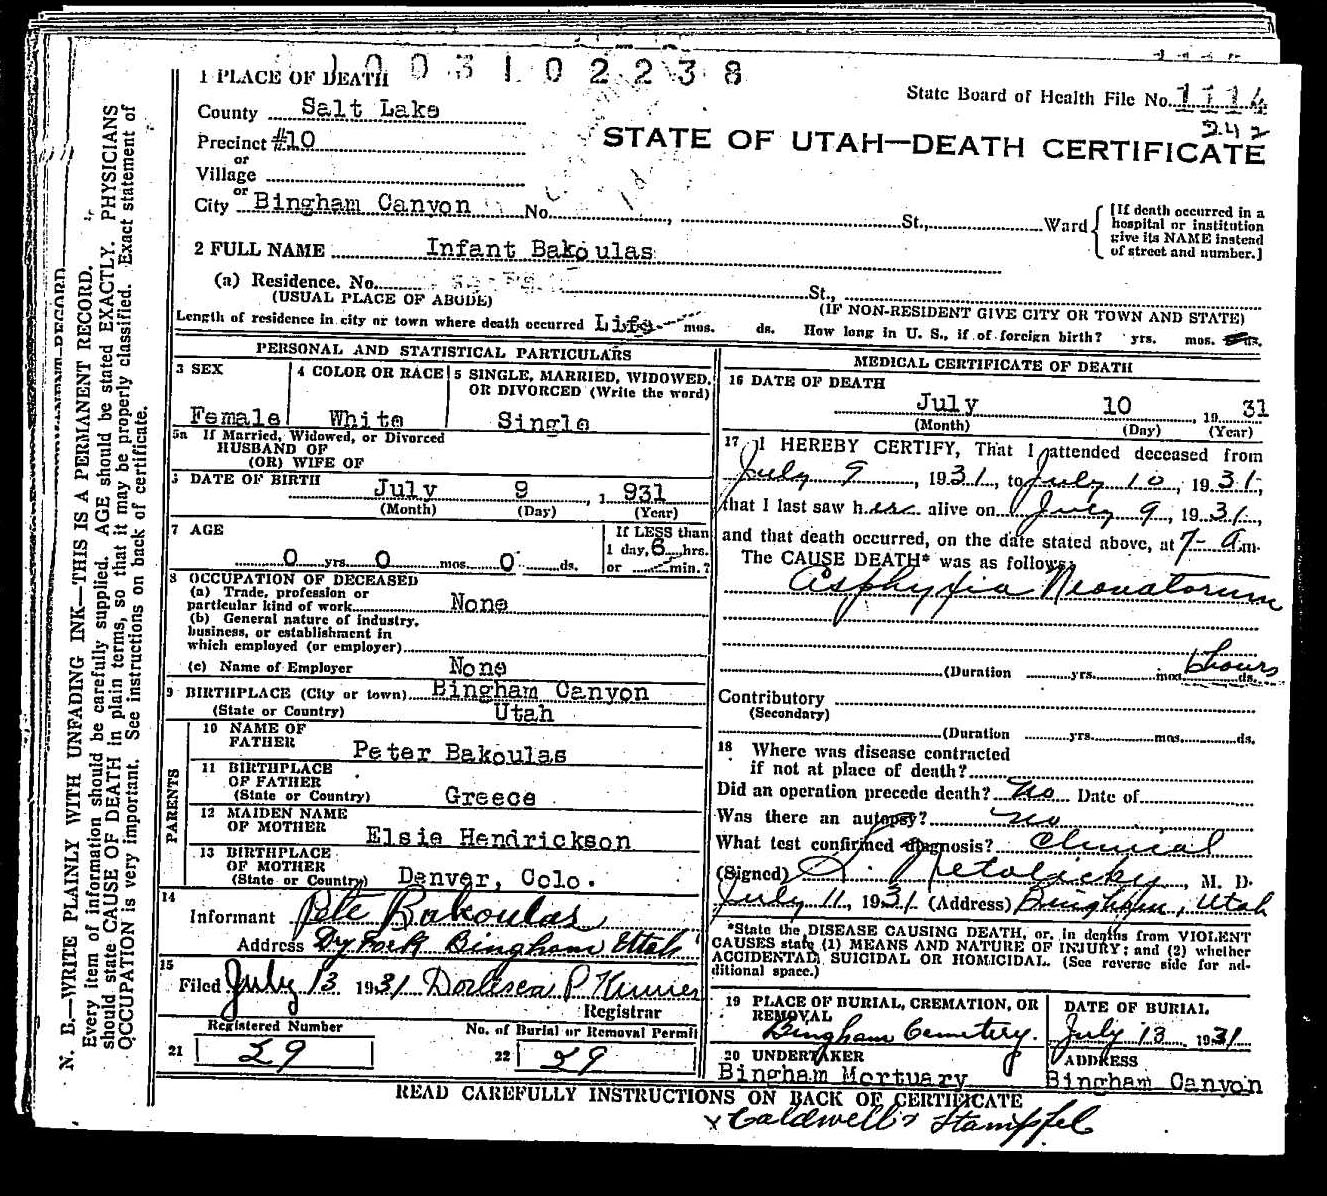 1003102238
1 PLACE OF DEATH
State Board of Health File No. 1114
242
County Salt Lake
STATE OF UTAH—DEATH CERTIFICATE
Precinct #10
or
Village
or
City Bingham Canyon No. , St., Ward
[If death occurred in a
hospital or institution
give its NAME instead
of street and number.]
2 FULL NAME Infant Bakoulas
(a) Residence. No. St.,
(USUAL PLACE OF ABODE) (IF NON-RESIDENT GIVE CITY OR TOWN AND STATE)
Length of residence in city or town where death occurred Life mos. ds. How long in U. S., if of foreign birth? yrs. mos. ds.
PERSONAL AND STATISTICAL PARTICULARS
3 SEX 4 COLOR OR RACE 5 SINGLE, MARRIED, WIDOWED,
OR DIVORCED (Write the word)
Female White Single
5a If Married, Widowed, or Divorced
HUSBAND OF
(OR) WIFE OF
DATE OF BIRTH July 9 1931
(Month) (Day) (Year)
7 AGE If LESS than
1 day, 6 hrs.
0 yrs. 0 mos. 0 ds. or min.?
8 OCCUPATION OF DECEASED
(a) Trade, profession or
particular kind of work None
(b) General nature of industry,
business, or establishment in
which employed (or employer)
(c) Name of Employer None
9 BIRTHPLACE (City or town) Bingham Canyon
(State or Country) Utah
PARENTS
10 NAME OF
FATHER Peter Bakoulas
11 BIRTHPLACE
OF FATHER
(State or Country) Greece
12 MAIDEN NAME
OF MOTHER Elsie Hendrickson
13 BIRTHPLACE
OF MOTHER
(State or Country) Denver, Colo.
14
Informant Pete Bakoulas
Address Bingham Utah
15
Filed July 13 1931
Registrar
Registered Number No. of Burial or Removal Permit
21 29 22 29
MEDICAL CERTIFICATE OF DEATH
16 DATE OF DEATH
July 10 , 19 31
(Month) (Day) (Year)
17 I HEREBY CERTIFY, That I attended deceased from
July 9 , 1931, to July 10, 1931,
that I last saw her alive on July 9, 1931,
and that death occurred, on the date stated above, at 7 a m.
The CAUSE DEATH* was as follows:
Asphyxia Neonatorum
(Duration yrs. mos. 6 hours ds.
Contributory
(Secondary)
(Duration yrs. mos. ds.
18 Where was disease contracted
if not at place of death?
Did an operation precede death? No Date of
Was there an autopsy? No
What test confirmed diagnosis? Clinical
(Signed) , M. D.
July 11, 1931 (Address) Bingham, Utah
*State the DISEASE CAUSING DEATH, or, in deaths from VIOLENT
CAUSES state (1) MEANS AND NATURE OF INJURY; and (2) whether
ACCIDENTAL, SUICIDAL OR HOMICIDAL. (See reverse side for ad-
ditional space.)
19 PLACE OF BURIAL, CREMATION, OR
REMOVAL
Bingham Cemetery.
DATE OF BURIAL
July 13 1931
20 UNDERTAKER
Bingham Mortuary
ADDRESS
Bingham Canyon
READ CAREFULLY INSTRUCTIONS ON BACK OF CERTIFICATE
N. B.—WRITE PLAINLY WITH UNFADING INK—THIS IS A PERMANENT RECORD.
Every item of information should be carefully supplied. AGE should be stated EXACTLY. PHYSICIANS
should state CAUSE OF DEATH in plain terms, so that it may be properly classified. Exact statement of
OCCUPATION is very important. See instructions on back of certificate.